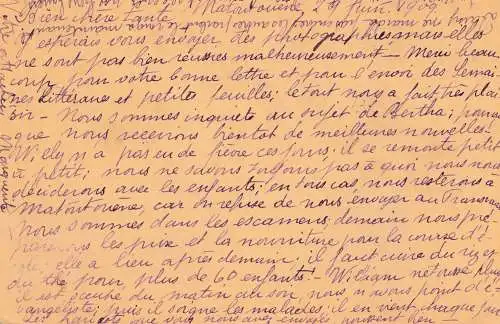 Matoutouène 29 Juin 1909
Bien chère Tante
J'espérais vous envoyer des photographies mais elles
ne sont pas bien réussies malheureusement — Merci beau
coup pour votre bonne lettre et pour l'envoi des Semai
nes littéraires et petites feuilles; le tout nous a fait très plai
sir — Nous sommes inquiets au sujet de Bertha; pourvu
que nous recevions bientôt de meilleures nouvelles —
Willy n'a pas eu de fièvre ces jours; il se remonte petit
à petit; nous ne savons toujours pas à quoi nous nous
déciderons avec les enfants; en tous cas, nous resterons à
Matoutouène, car on refuse de nous envoyer au Transvaal
Nous sommes dans les examens; demain nous pré
parerons les prix et la nourriture pour la course d'é
cole; elle a lieu après demain; il faut cuire du riz et
du thé pour plus de 60 enfants! — William ne touse plus
il est occupé du matin au soir, nous n'avons point d'é
vangéliste; puis il soigne les malades; il en vient chaque jour
que vous nous avez envoyés